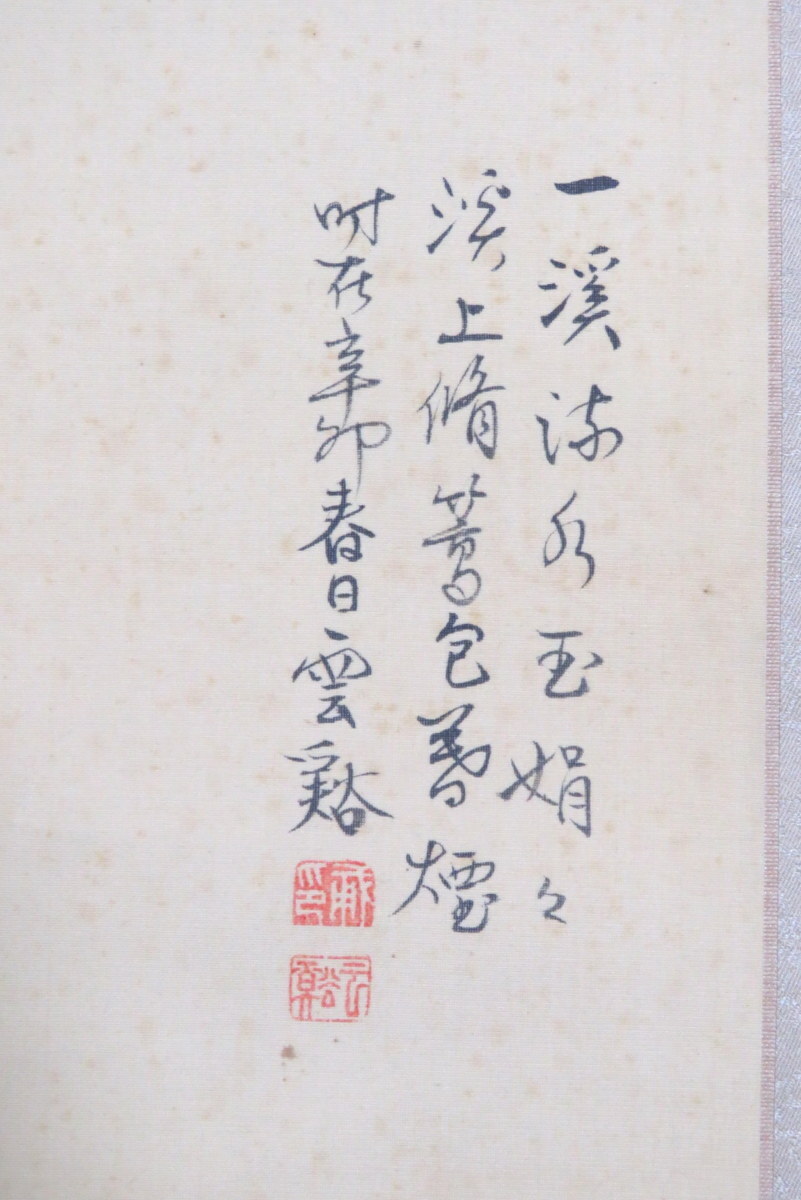 一溪流水玉娟々
溪上脩篁包暮煙
时在辛卯春日雲谿